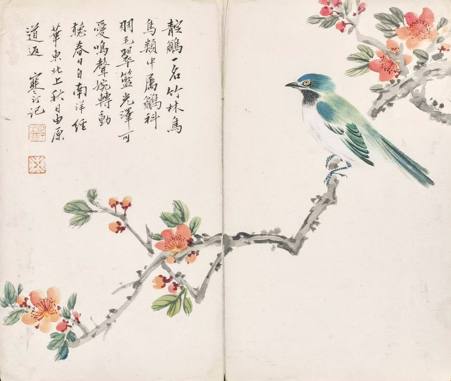 靛鶲一名竹林鳥
鳥類中屬鶲科
羽毛翠籃光澤可
愛鳴聲婉轉動
聽春日自南洋經
華東北上秋日由原
道返 寒汀記